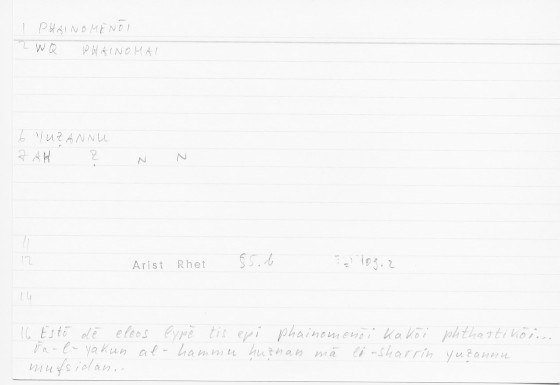 1 PHAINOMENŌI
2 WQ PHAINOMAI
6 YUẒANNU
Ẓ N N
11
12 Arist Rhet
14
16 Estō dē eleos lypē tis epi phainomenōi kakōi phthartikōi...
Fa-l-yakun al-hammu ḥuznan mā li-sharrin yuẓannu
mufsidan..